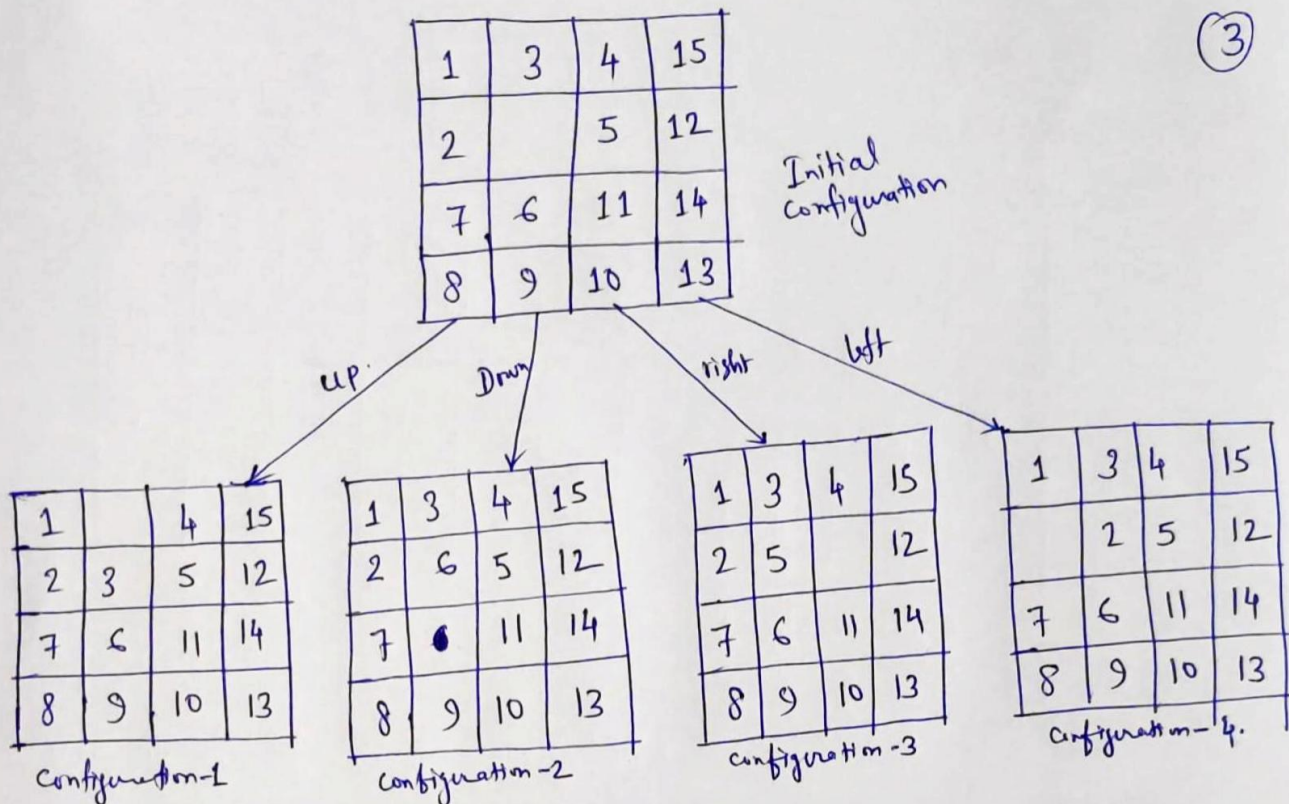 3
1 3 4 15
2 5 12
7 6 11 14
8 9 10 13
Initial
Configuration
up.
Down
right
left
1 4 15
2 3 5 12
7 6 11 14
8 9 10 13
Configuration-1
1 3 4 15
2 6 5 12
7 11 14
8 9 10 13
Configuration-2
1 3 4 15
2 5 12
7 6 11 14
8 9 10 13
Configuration-3
1 3 4 15
2 5 12
7 6 11 14
8 9 10 13
Configuration-4.